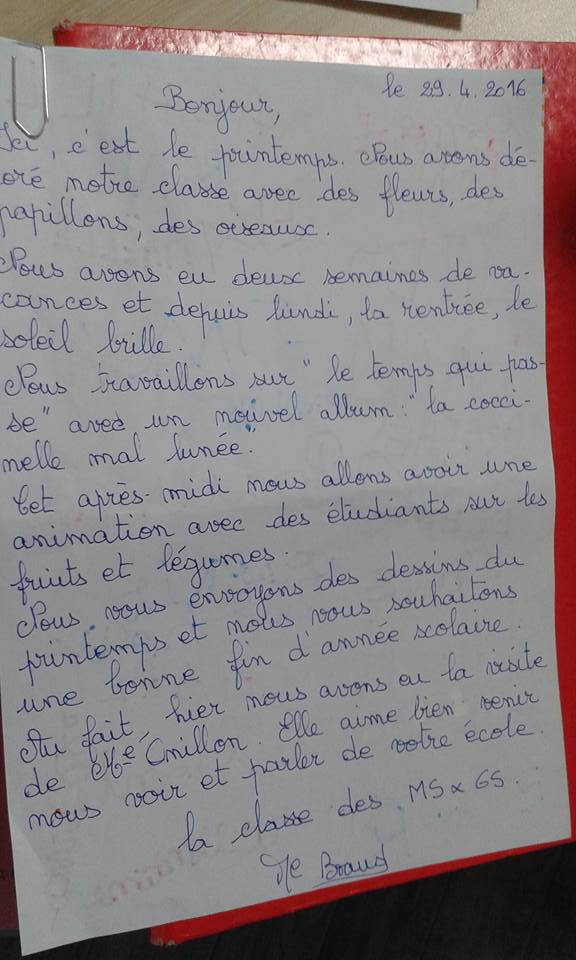 le 29.4.2016
Bonjour,
Ici, c'est le printemps. Nous avons dé-
oré notre classe avec des fleurs, des
papillons, des oiseaux.
Nous avons eu deux semaines de va-
cances et depuis lundi, la rentrée, le
soleil brille.
Nous travaillons sur "le temps qui pas-
se" avec un nouvel album : "la cocci-
nelle mal lunée".
Cet après-midi nous allons avoir une
animation avec des étudiants sur les
fruits et légumes.
Nous vous envoyons des dessins du
printemps et nous vous souhaitons
une bonne fin d'année scolaire.
Au fait, hier nous avons eu la visite
de Me Cnillon. Elle aime bien venir
nous voir et parler de votre école.
la classe des MS x GS.
Me Braud